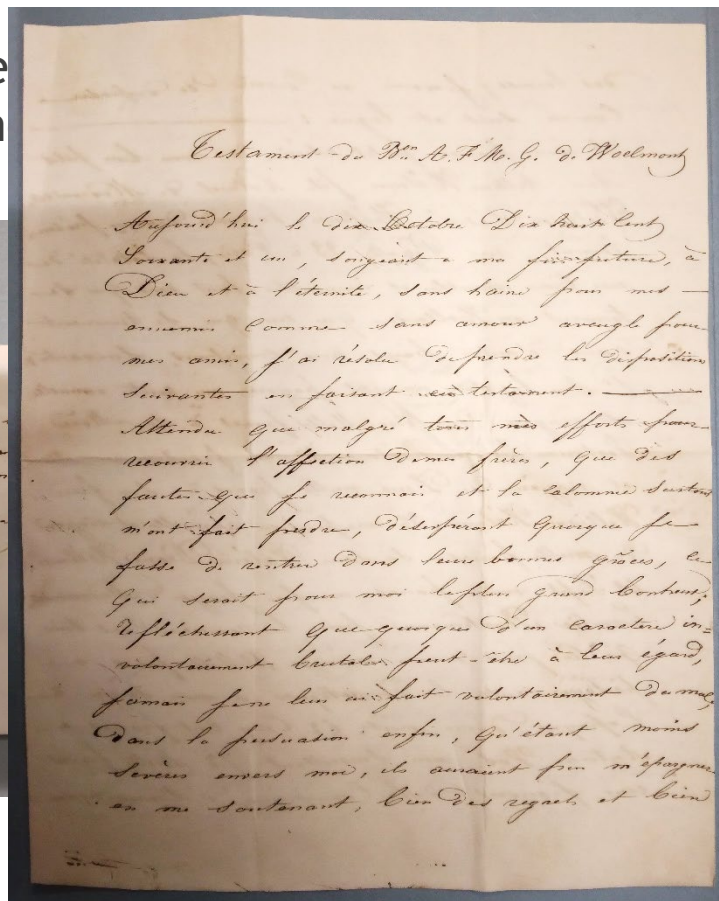 Testament du Bon A. F. M. G. de Woelmont
Aujourd'hui le dix Octobre Dix huit Cent
Soixante et un, songeant a ma fin future, à
Dieu et à l'éternité, sans haine pour mes —
ennemis comme sans amour aveugle pour
mes amis, j'ai résolu de prendre les dispositions
suivantes en faisant testament. —
Attendu que malgré tous mes efforts pour
recouvrir l'affection de mes frères, que des
fautes que je reconnais et la calomnie surtout
m'ont fait perdre, désespérant quoique je
fasse de rentrer dans leurs bonnes grâces, ce
qui serait pour moi le plus grand bonheur;
réfléchissant que quoique d'un caractère in=
volontairement brutal peut-être à leur égard,
jamais je ne leur ai fait volontairement du mal,
Dans la persuasion enfin, qu'étant moins
sévères envers moi, ils auraient pu m'épargner
en me soutenant, bien des regrets et bien